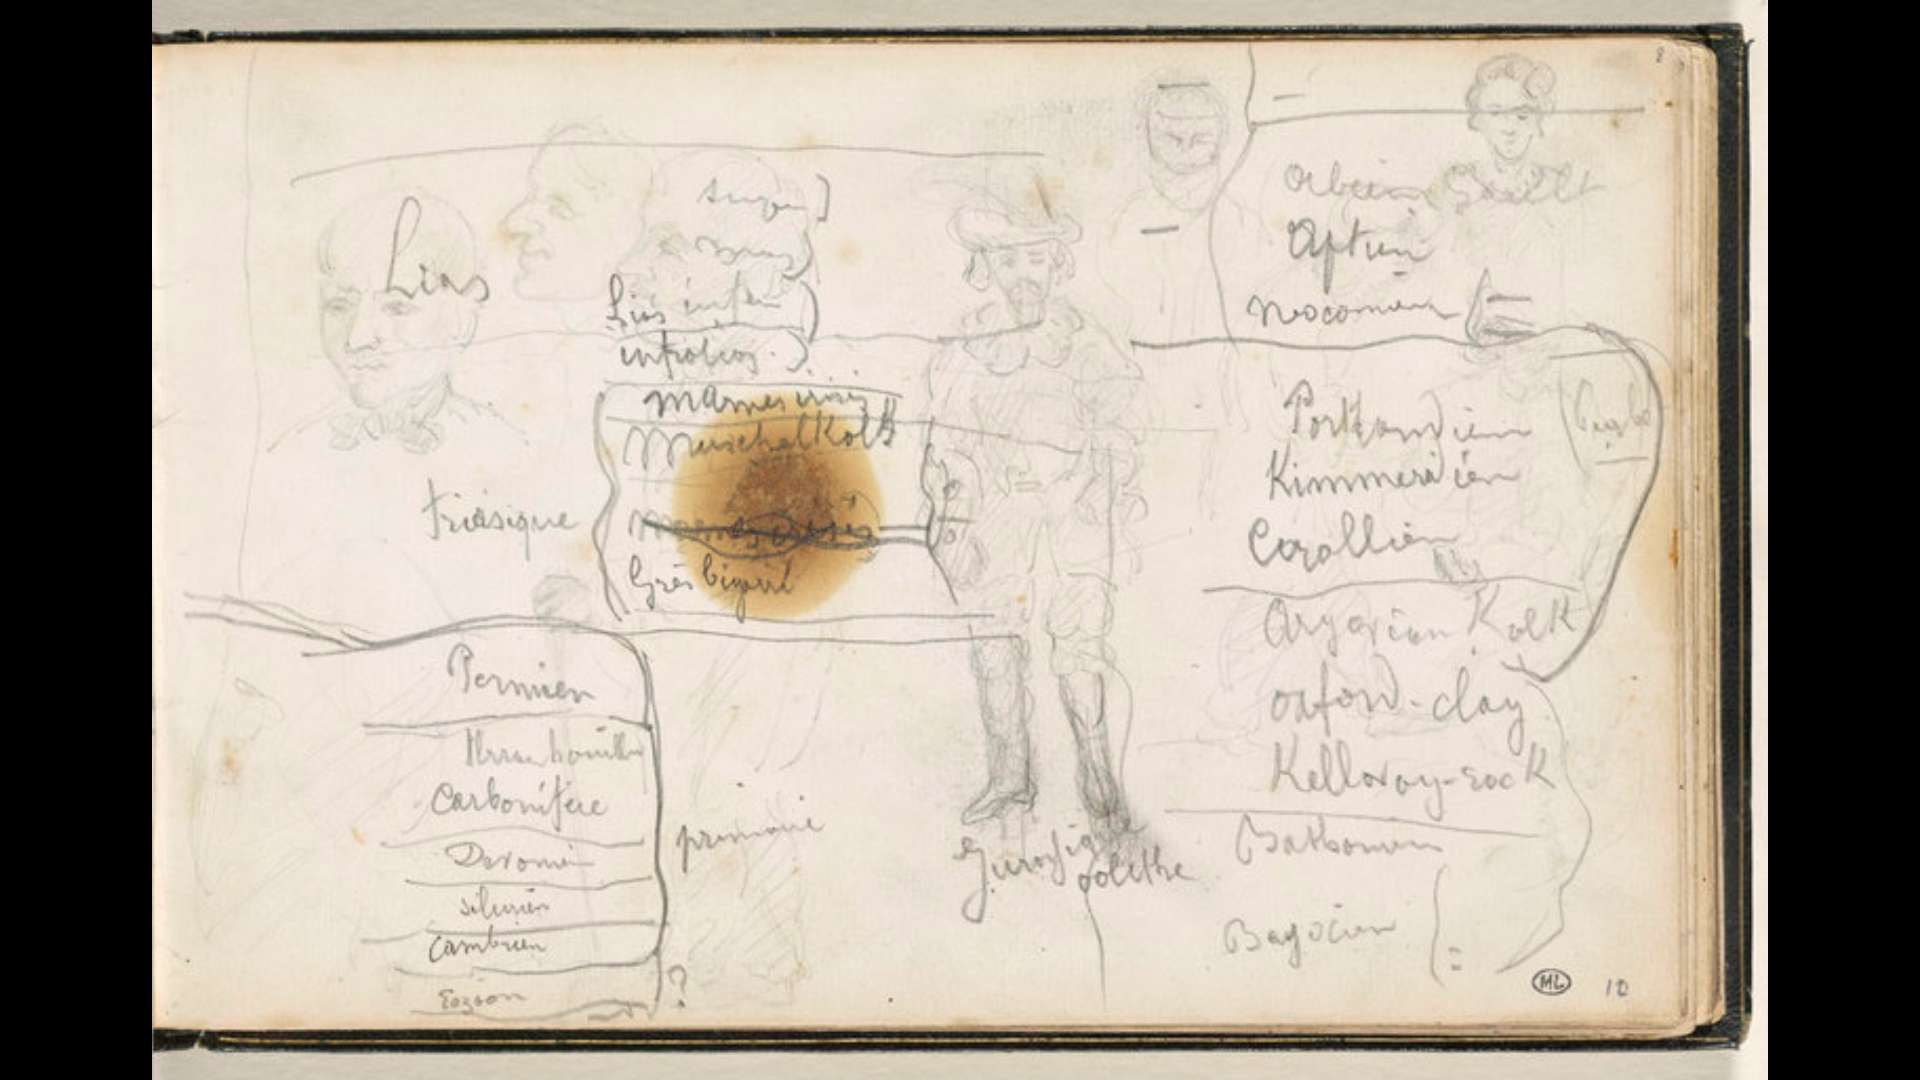 Lias
Lias infer
infralias.
marnes irisé
Muschelkalk
marnes irisés
triasique
Grès bigarré
Permien
Carbonifère
Devonien
silurien
cambrien
Eozoon
?
primaire
Jurassique
oolithe
Gault
Aptien
Neocomien
Portlandien
Kimmeridien
Corallien
Argovien Kalk
oxford-clay
Kelloway-rock
Bathonien
Bajocien
ML
10